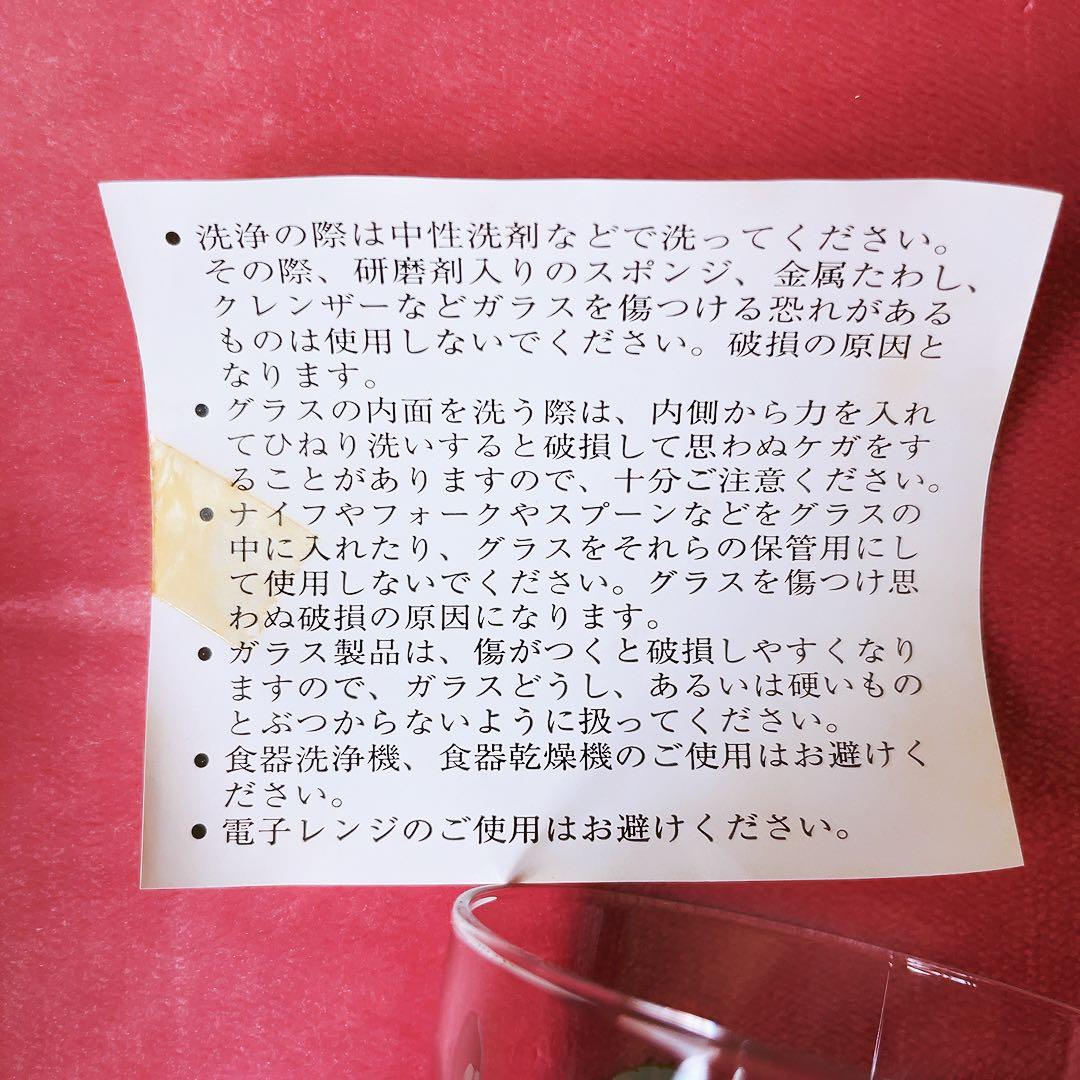 ● 洗浄の際は中性洗剤などで洗ってください。
その際、研磨剤入りのスポンジ、金属たわし、
クレンザーなどガラスを傷つける恐れがある
ものは使用しないでください。破損の原因と
なります。
● グラスの内面を洗う際は、内側から力を入れ
てひねり洗いすると破損して思わぬケガをす
ることがありますので、十分ご注意ください。
● ナイフやフォークやスプーンなどをグラスの
中に入れたり、グラスをそれらの保管用にし
て使用しないでください。グラスを傷つけ思
わぬ破損の原因になります。
● ガラス製品は、傷がつくと破損しやすくなり
ますので、ガラスどうし、あるいは硬いもの
とぶつからないように扱ってください。
● 食器洗浄機、食器乾燥機のご使用はお避けく
ださい。
● 電子レンジのご使用はお避けください。